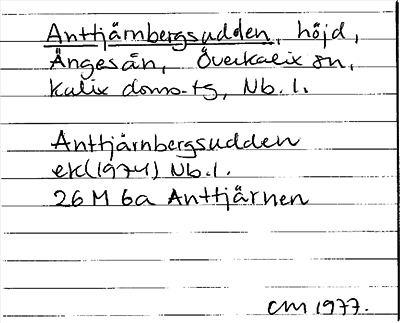 Anttjärnbergsudden, höjd,
Ängesån, Överkalix sn,
Kalix doms.tg, Nb. l.
Anttjärnbergsudden
ek(1974) Nb.l.
26 M 6a Anttjärnen
CM 1977.